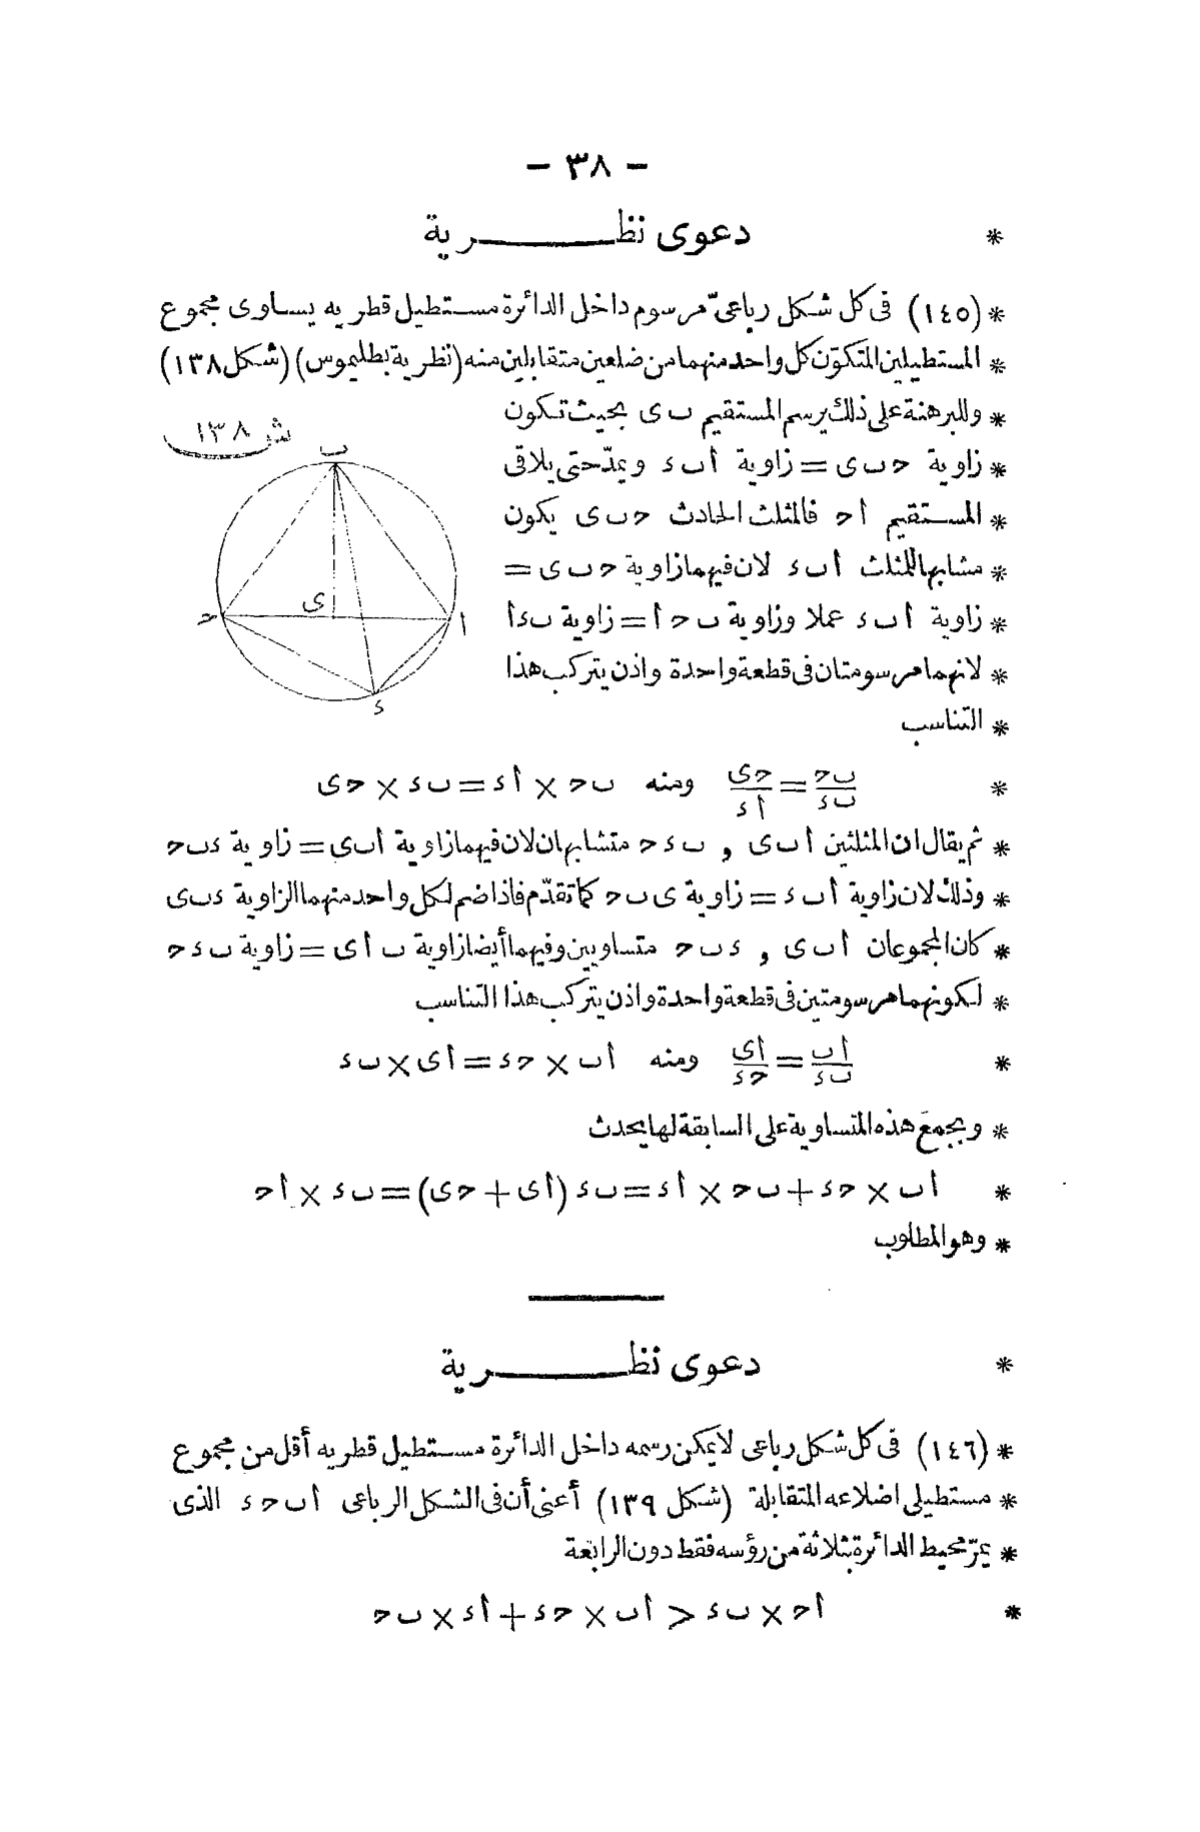 - ٣٨ -
* دعوى نظـــــرية
* (١٤٥) فى كل شكل رباعىّ مرسوم داخل الدائرة مستطيل قطريه يساوى مجموع
* المستطيلين المتكوّن كل واحد منهما من ضلعين متقابلين منه (نظرية بطليموس) (شكل ١٣٨)
* وللبرهنة على ذلك يرسم المستقيم ب ى بحيث تكون
* زاوية ح ب ى = زاوية أ ب ء ويمدّ حتى يلاقى
* المستقيم أ ح فالمثلث الحادث ح ب ى يكون
* مشابها للمثلث أ ب ء لان فيهما زاوية ح ب ى =
* زاوية أ ب ء عملا وزاوية ب ح أ = زاوية ب ء أ
* لانهما مرسومتان فى قطعة واحدة واذن يتركب هذا
* التناسب
ش ١٣٨
ب
ى
ح
أ
ء
* ب ح / ب ء = ح ى / أ ء ومنه ب ح × أ ء = ب ء × ح ى
* ثم يقال ان المثلثين أ ب ى , ب ء ح متشابهان لان فيهما زاوية أ ب ى = زاوية ء ب ح
* وذلك لان زاوية أ ب ء = زاوية ى ب ح كما تقدّم فاذا ضم لكل واحد منهما الزاوية ء ب ى
* كان المجموعان أ ب ى , ء ب ح متساويين وفيهما أيضا زاوية ب أ ى = زاوية ب ء ح
* لكونهما مرسومتين فى قطعة واحدة واذن يتركب هذا التناسب
* أ ب / ب ء = أ ى / ح ء ومنه أ ب × ح ء = أ ى × ب ء
* وبجمع هذه المتساوية على السابقة لها يحدث
* أ ب × ح ء + ب ح × أ ء = ب ء (أ ى + ح ى) = ب ء × أ ح
* وهو المطلوب
* دعوى نظـــــرية
* (١٤٦) فى كل شكل رباعى لا يمكن رسمه داخل الدائرة مستطيل قطريه أقل من مجموع
* مستطيلى اضلاعه المتقابلة (شكل ١٣٩) أعنى أن فى الشكل الرباعى أ ب ح ء الذى
* يمرّ محيط الدائرة بثلاثة من رؤسه فقط دون الرابعة
* أ ح × ب ء < أ ب × ح ء + أ ء × ب ح